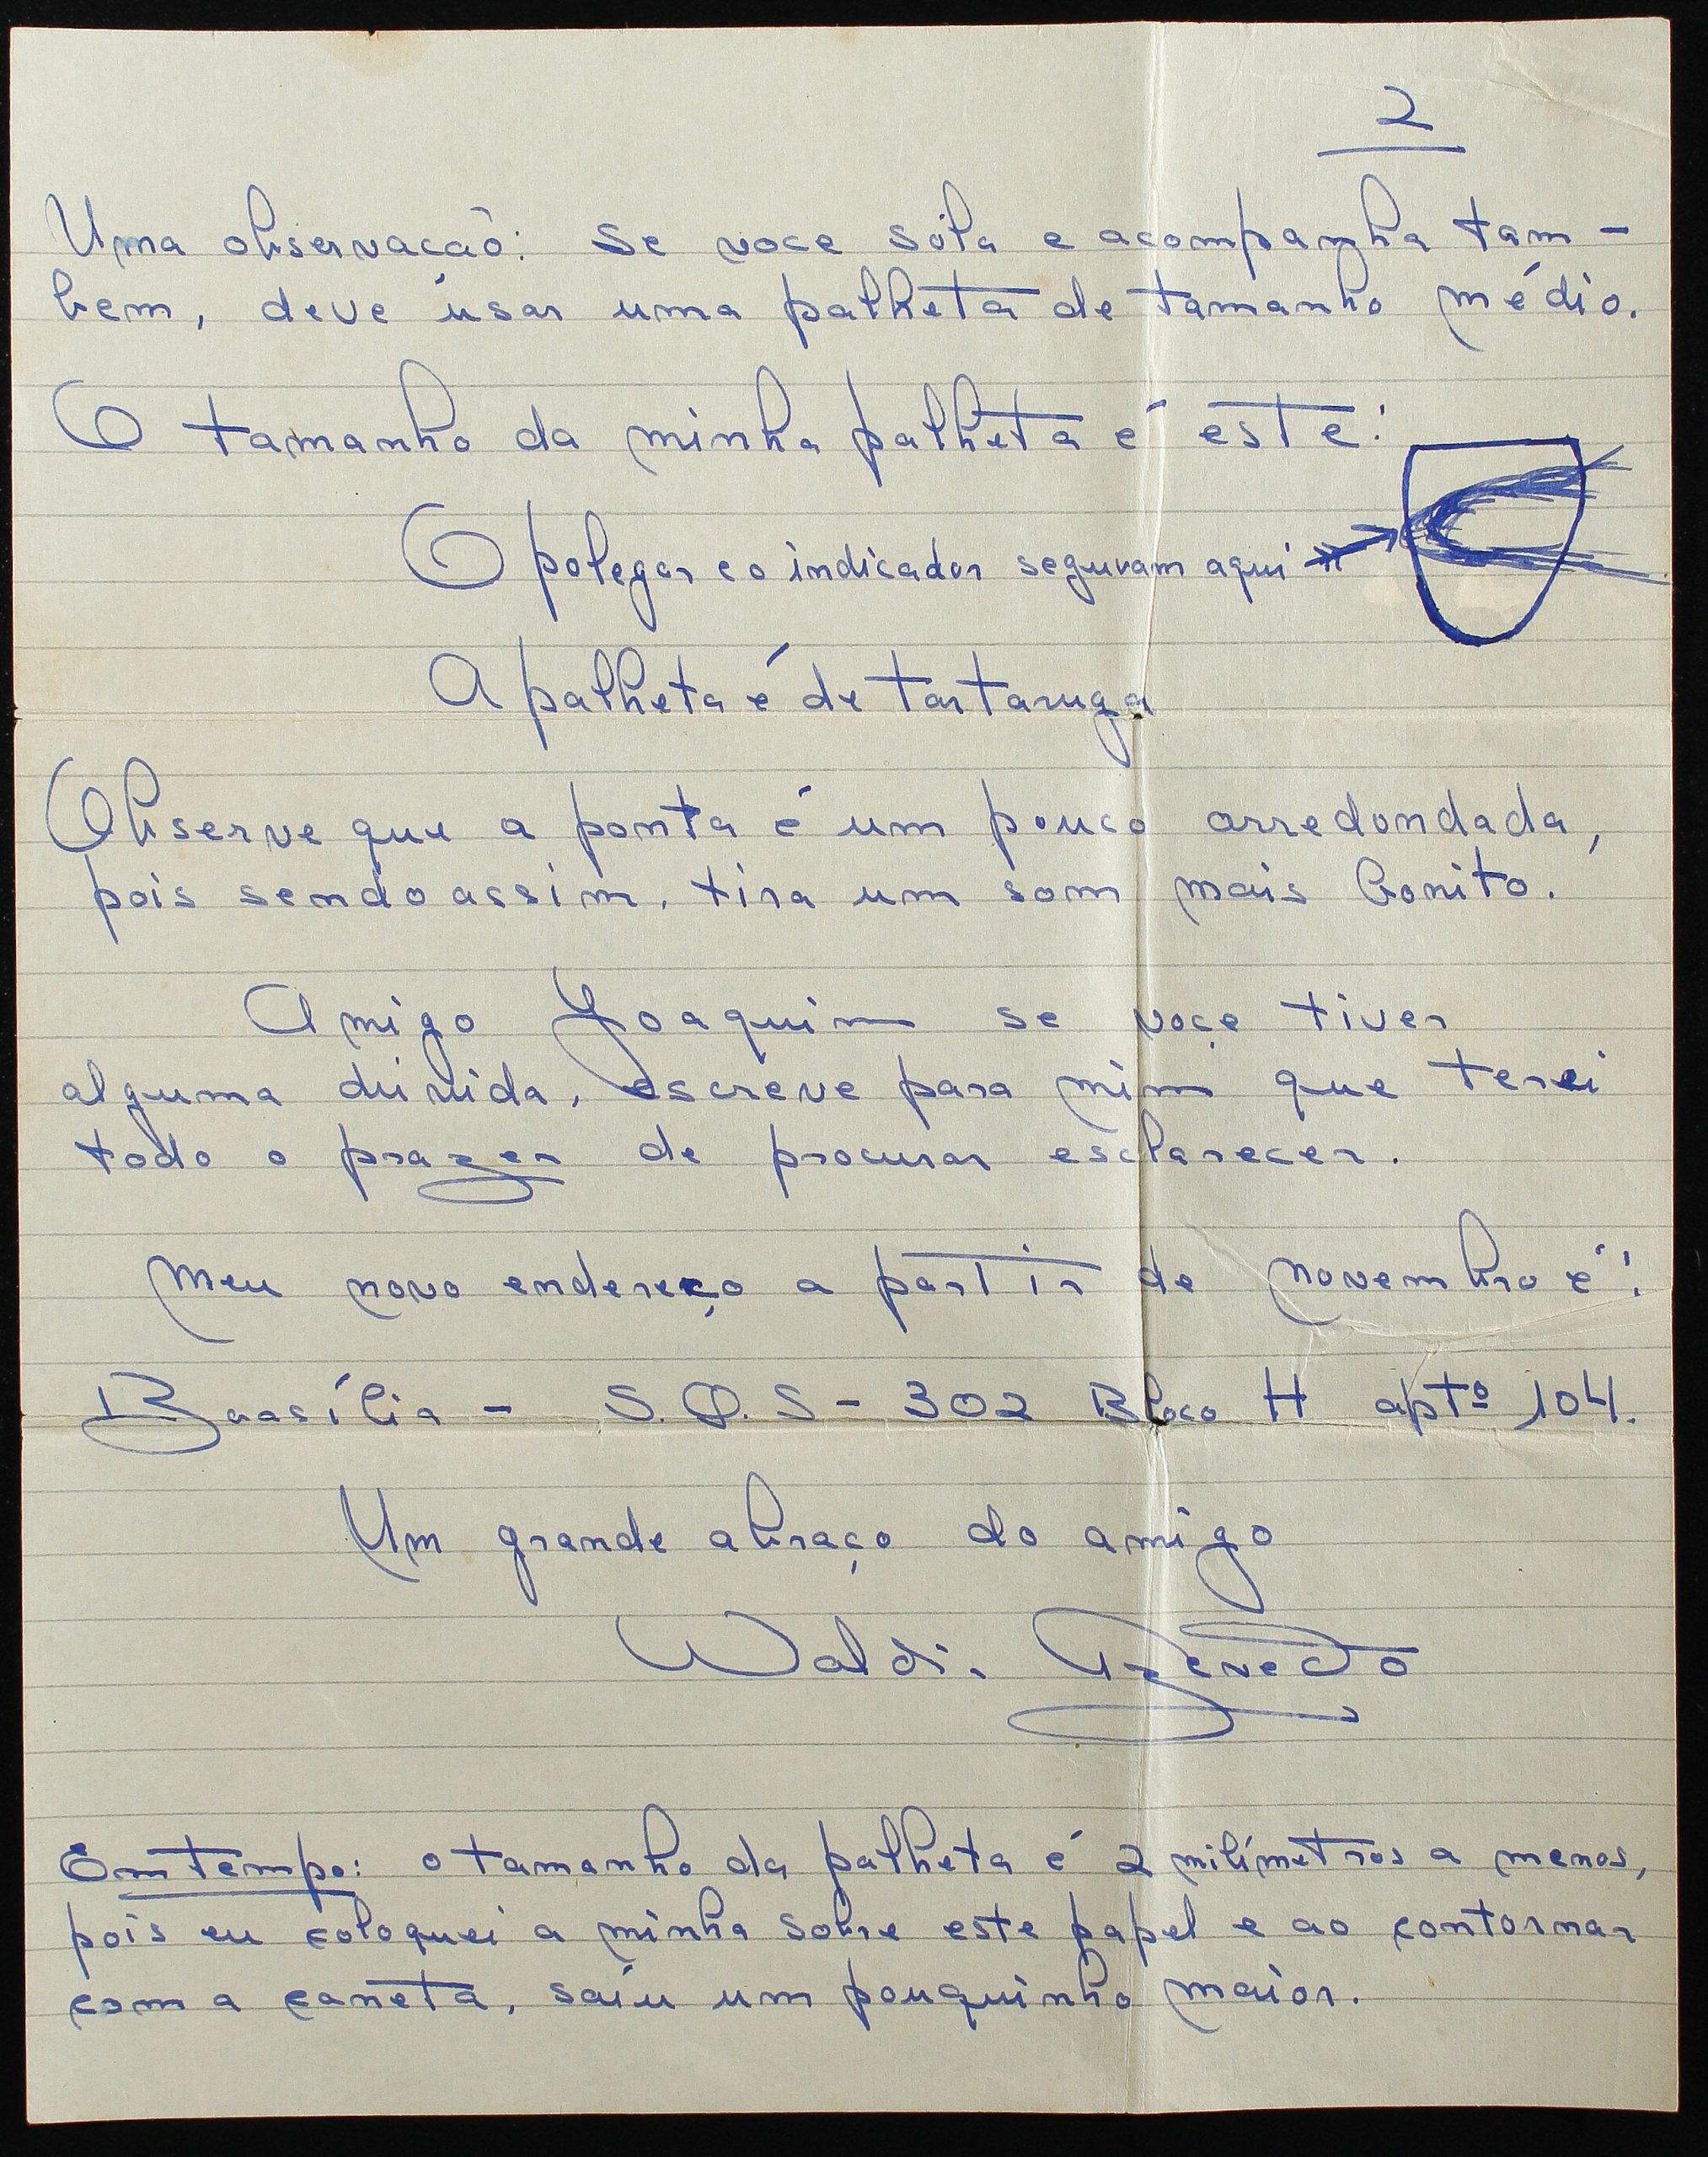 2
Uma observacão: se voce sóla e acompanha tam-
bem, deve usar uma palheta de tamanho médio.
O tamanho da minha palheta é este:
O polegar e o indicador seguram aqui
A palheta é de tartaruga
Observe que a ponta é um pouco arredondada,
pois sendo assim, tira um som mais bonito.
Amigo Joaquim se voçe tiver
alguma dúvida, escreve para mim que terei
todo o prazer de procurar esclarecer.
Meu novo endereço a partir de novembro é:
Brasília - S.Q.S - 302 Bloco H aptº 104.
Um grande abraço do amigo
Waldir Azevedo
Em tempo: o tamanho da palheta é 2 milímetros a menos,
pois eu coloquei a minha sobre este papel e ao contornar
com a caneta, saiu um pouquinho maior.